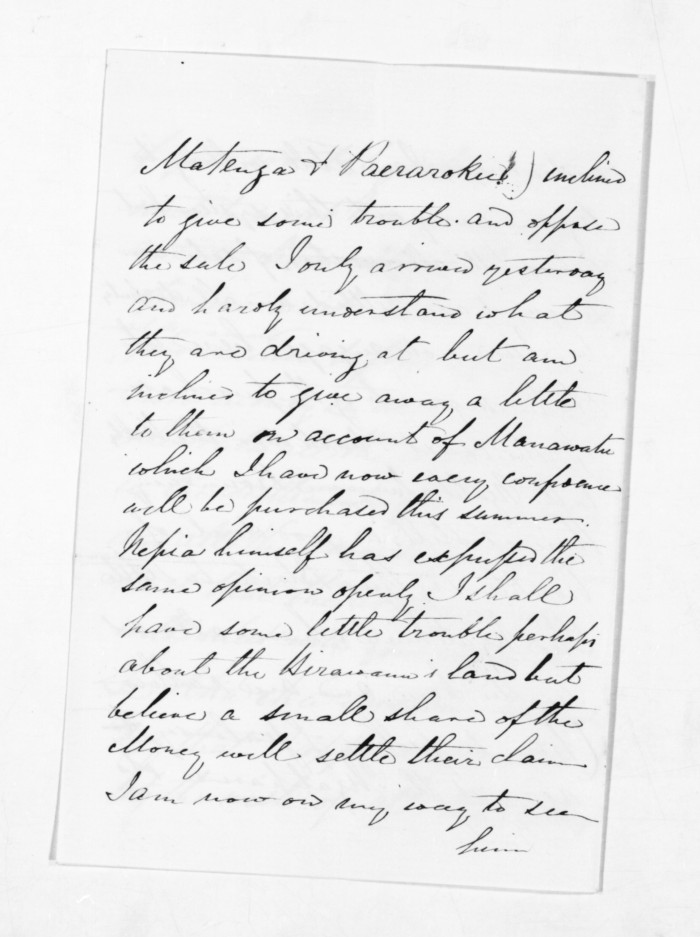 Matenga & Paeraroku) inclined
to give some trouble. and oppose
the sale I only arrived yesterday
and hardly understand what
they are driving at but am
inclined to give away a little
to them on account of Manawatu
which I have now every confidence
will be purchased this summer.
Nepia himself has expressed the
same opinion openly. I shall
have some little trouble perhaps
about the land but
believe a small share of the
Money will settle their claim
I am now on my way to see
him